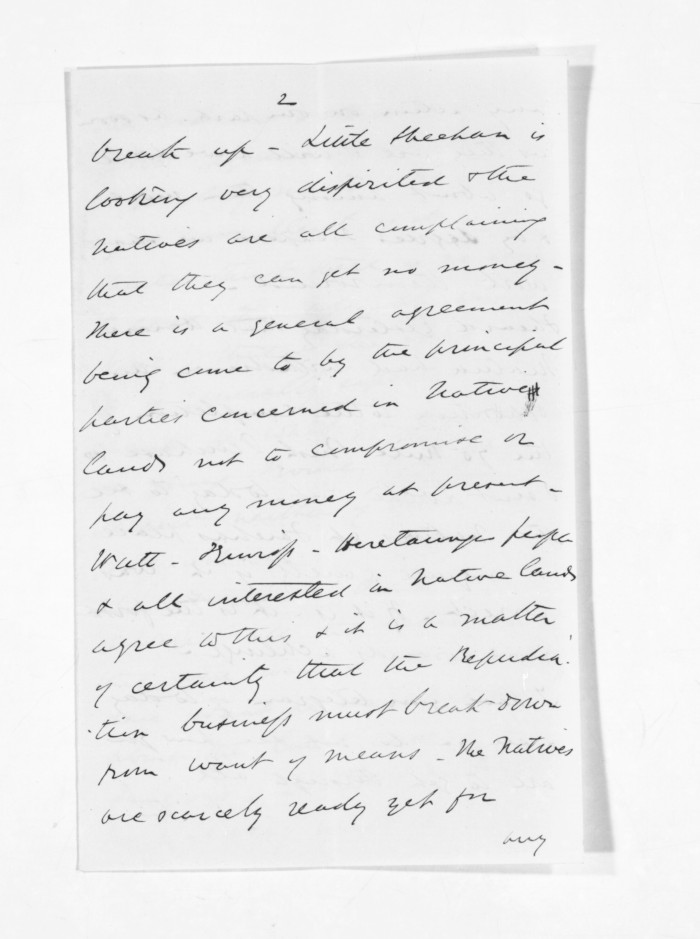 2
break up - Little Sheehan is
looking very dispirited & the
Natives are all complaining
that they can get no money -
There is a general agreement
being come to by the principal
parties concerned in Native
lands not to compromise or
pay any money at present -
Watt - - Heretaunga people
& all interested in Native lands
agree to this & it is a matter
of certainty that the Repudia
tion business must break down
from want of means - The Natives
are scarcely ready yet for
any